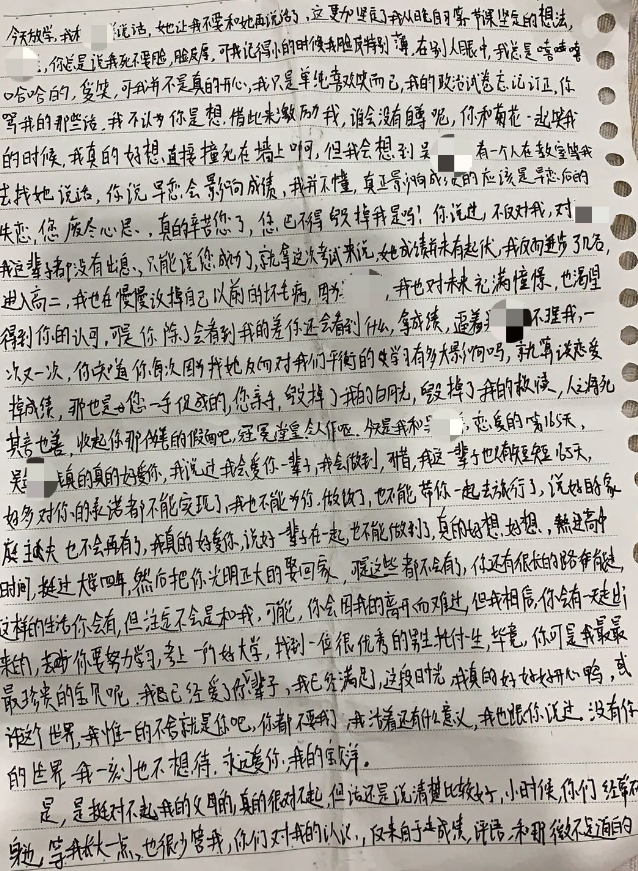 今天放学，我和 说话，她让我不要和她再说话了，这更加坚定了我从晚自习第一节课坚定的想法，
，你总是说我死不要脸，脸皮厚，可我记得小的时候我脸皮特别薄，在别人眼中，我总是嘻嘻嘻
哈哈的，爱笑，可我并不是真的开心，我只是单纯喜欢笑而已，我的政治试卷忘记订正，你
骂我的那些话，我不认为你是想借此来激励我，谁会没有自尊呢，你和菊花一起笑我
的时候，我真的好想直接撞死在墙上啊，但我会想到吴 有一个人在教室等我
去找她说话，你说早恋会影响成绩，我并不懂，真正影响成绩的应该是早恋后的
失恋，您废尽心思，真的辛苦您了，您巴不得毁掉我是吗？你说过，不仅对我，对
我这辈子都没有出息，只能说您成功了，就拿这次考试来说，她成绩并未有起伏，我反而进步了几名，
进入高二，我也在慢慢改掉自己以前的坏毛病，因为 ，我也对未来充满憧憬，也渴望
得到你的认可，可是你除了会看到我的差你还会看到什么，拿成绩， 不理我，一
次又一次，你知道你每次因为找她反而对我们平衡的 学习有多大影响吗，就算谈恋爱
掉成绩，那也是 您一手促成的，您亲手毁掉了我的白月光，毁掉了我的救赎，人之将死
其言也善，收起你那 的假面吧， 令人作呕。今天是我和吴 恋爱的第165天，
吴 我真的真的好爱你，我说过我会爱你一辈子，我会做到，可惜，我这一辈子也只有短短165天，
好多对你的承诺都不能实现了，我也不能为你做饭了，也不能带你一起去旅行了，说好的家
庭主夫也不会再有了，我真的好爱你，说好一辈子在一起，也不能做到了，真的好想，好想，熬过高中
时间，挺过大学四年，然后把你光明正大的娶回家， 这些都不会有了，你还有很长的路 过，
这样的生活你会有，但注定不会是和我，可能，你会因我的离开而难过，但我相信，你会有一天走出
来的，去吧，你要努力学习，考上一所好大学，找到一位很优秀的男生托付一生，毕竟，你可是我最最
最珍贵的宝贝呢，我自己经爱了你 辈子，我已经满足，这段时光，我真的好好好开心鸭，或
许这个世界，我惟一的不舍就是你吧，你都不要我了，我活着还有什么意义，我也跟你说过，没有你
的世界，我一刻也不想待，永远爱你，我的宝 。
是，是挺对不起我的父母的，真的很对不起，但话还是说清楚比较好，小时候，你们经常不
身边，等我长大一点，也很少管我，你们对我的认识，仅来自于 成绩，评语，和那微不足道的